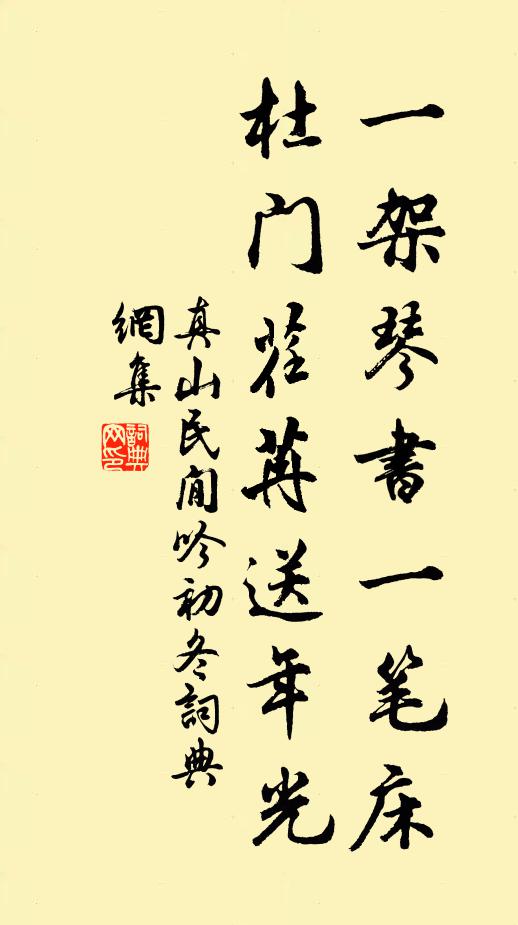 一架琴書一笔床
杜門荏苒送年光
真山民閒吟初冬詞典
網集
詞典網印